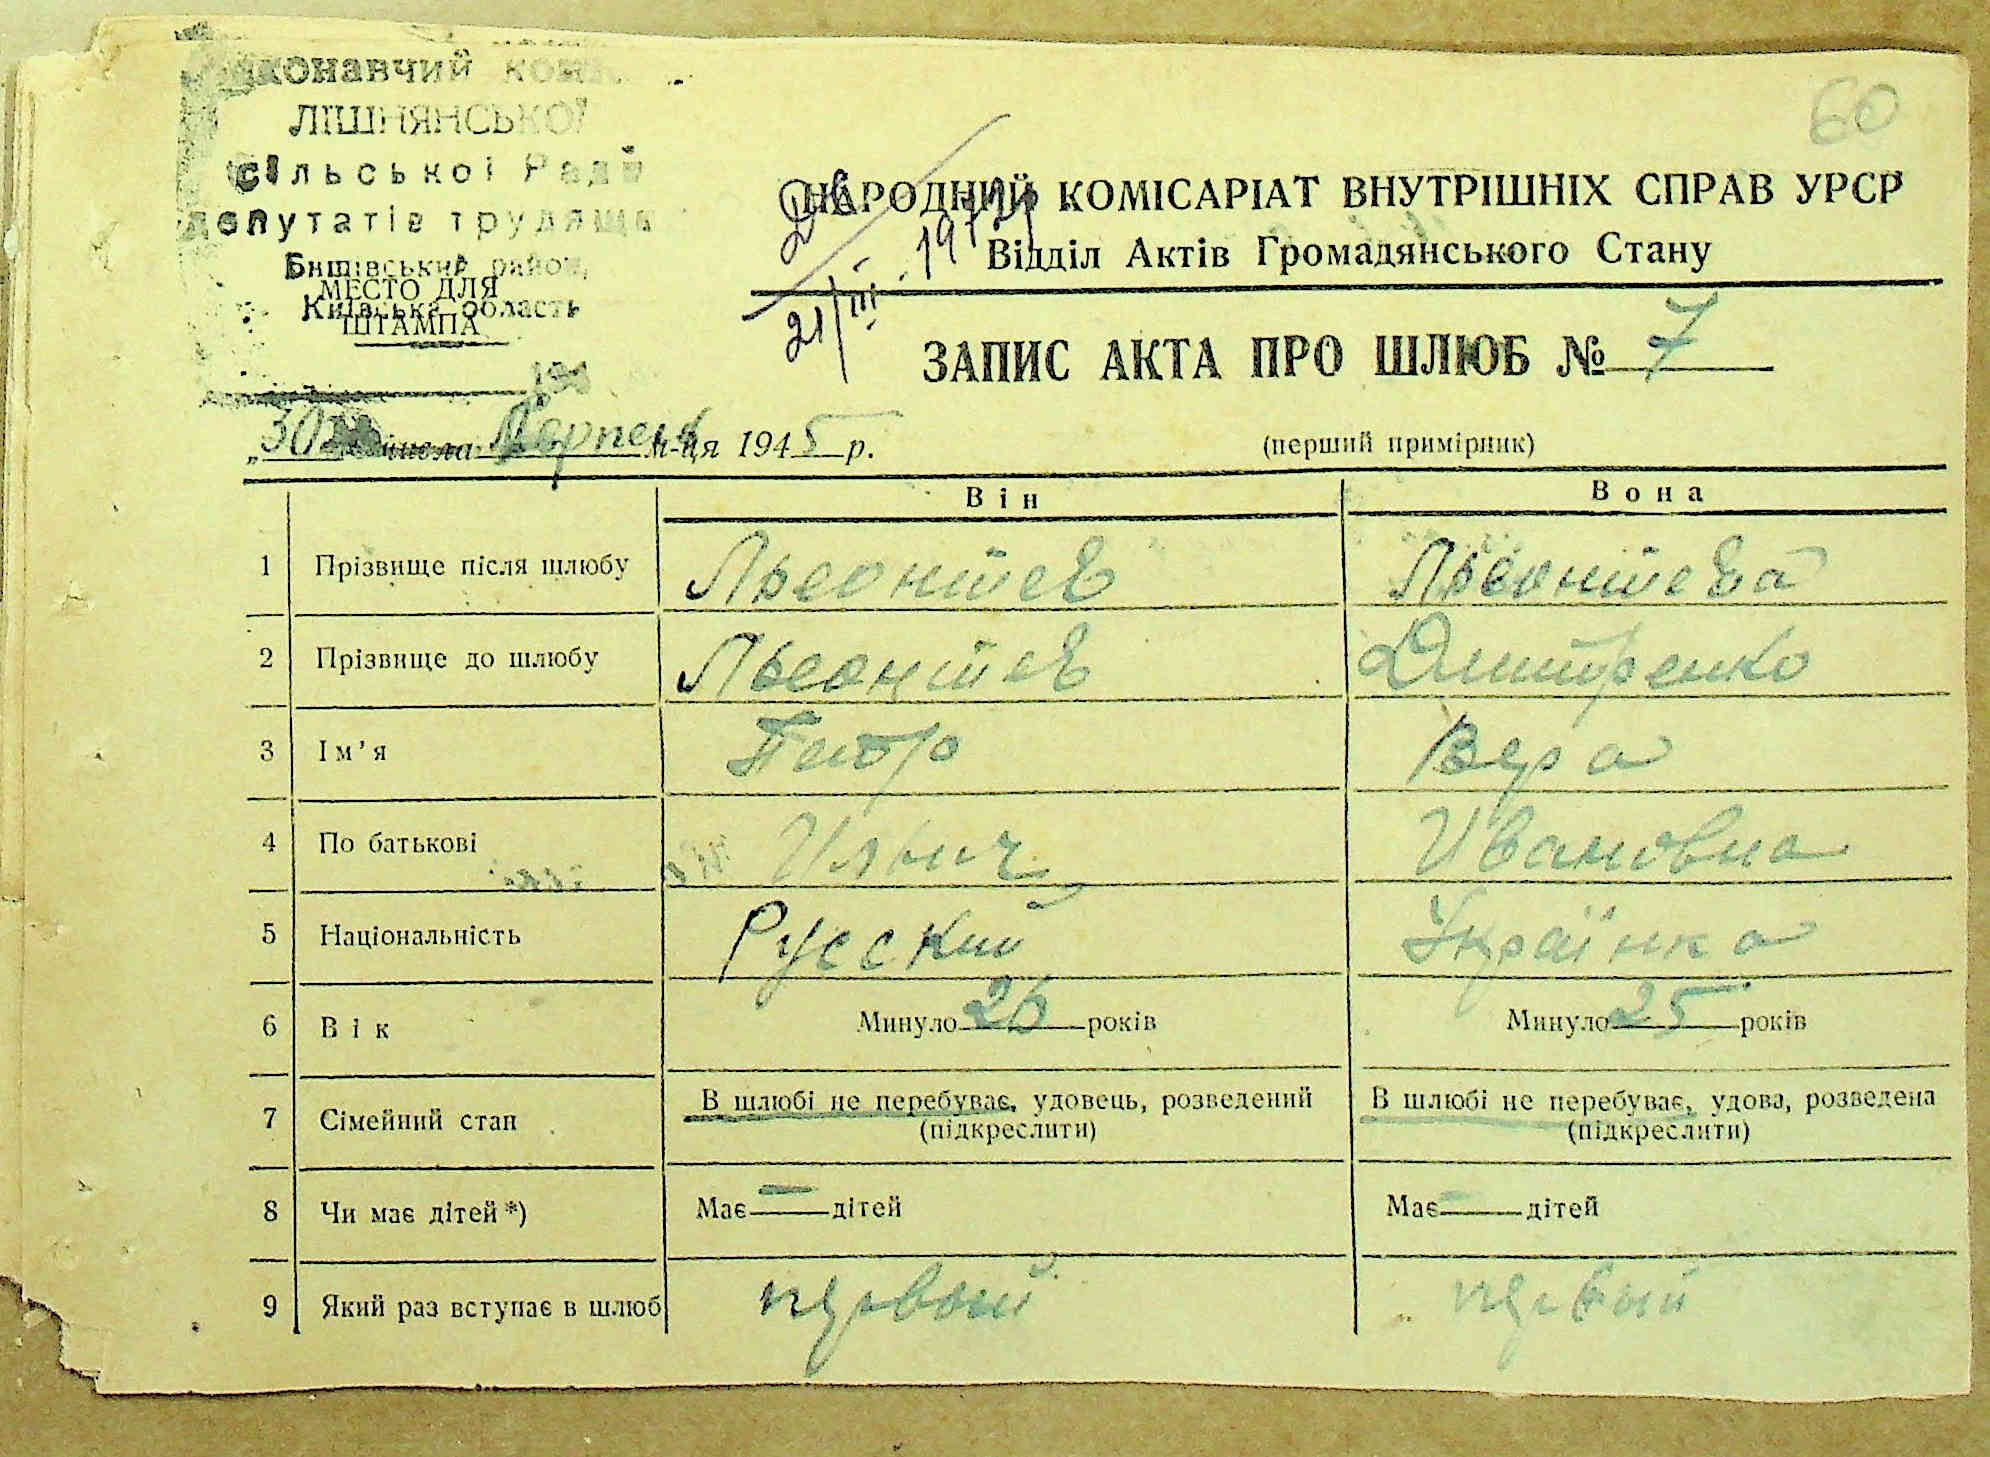 60
конавчий ком
ЛІШНЯНСЬКОЇ
сільської Ради
депутатів трудящ
Бишівський район,
МЕСТО ДЛЯ
Київська область
ШТАМПА
21/III. 1979
НАРОДНИЙ КОМІСАРІАТ ВНУТРІШНІХ СПРАВ УРСР
Відділ Актів Громадянського Стану
ЗАПИС АКТА ПРО ШЛЮБ № 7
„30 числа Серпень м-ця 1945 р.
(перший примірник)
Він Вона
1 Прізвище після шлюбу Льеонтев Льеонтева
2 Прізвище до шлюбу Льеонтев Дмитренко
3 Ім’я Петро Вера
4 По батькові Ильич Ивановна
5 Національність Русский Українка
6 Вік Минуло 26 років Минуло 25 років
7 Сімейний стан В шлюбі не перебуває, удовець, розведений В шлюбі не перебуває, удова, розведена
(підкреслити) (підкреслити)
8 Чи має дітей *) Має — дітей Має — дітей
9 Який раз вступає в шлюб первый первый